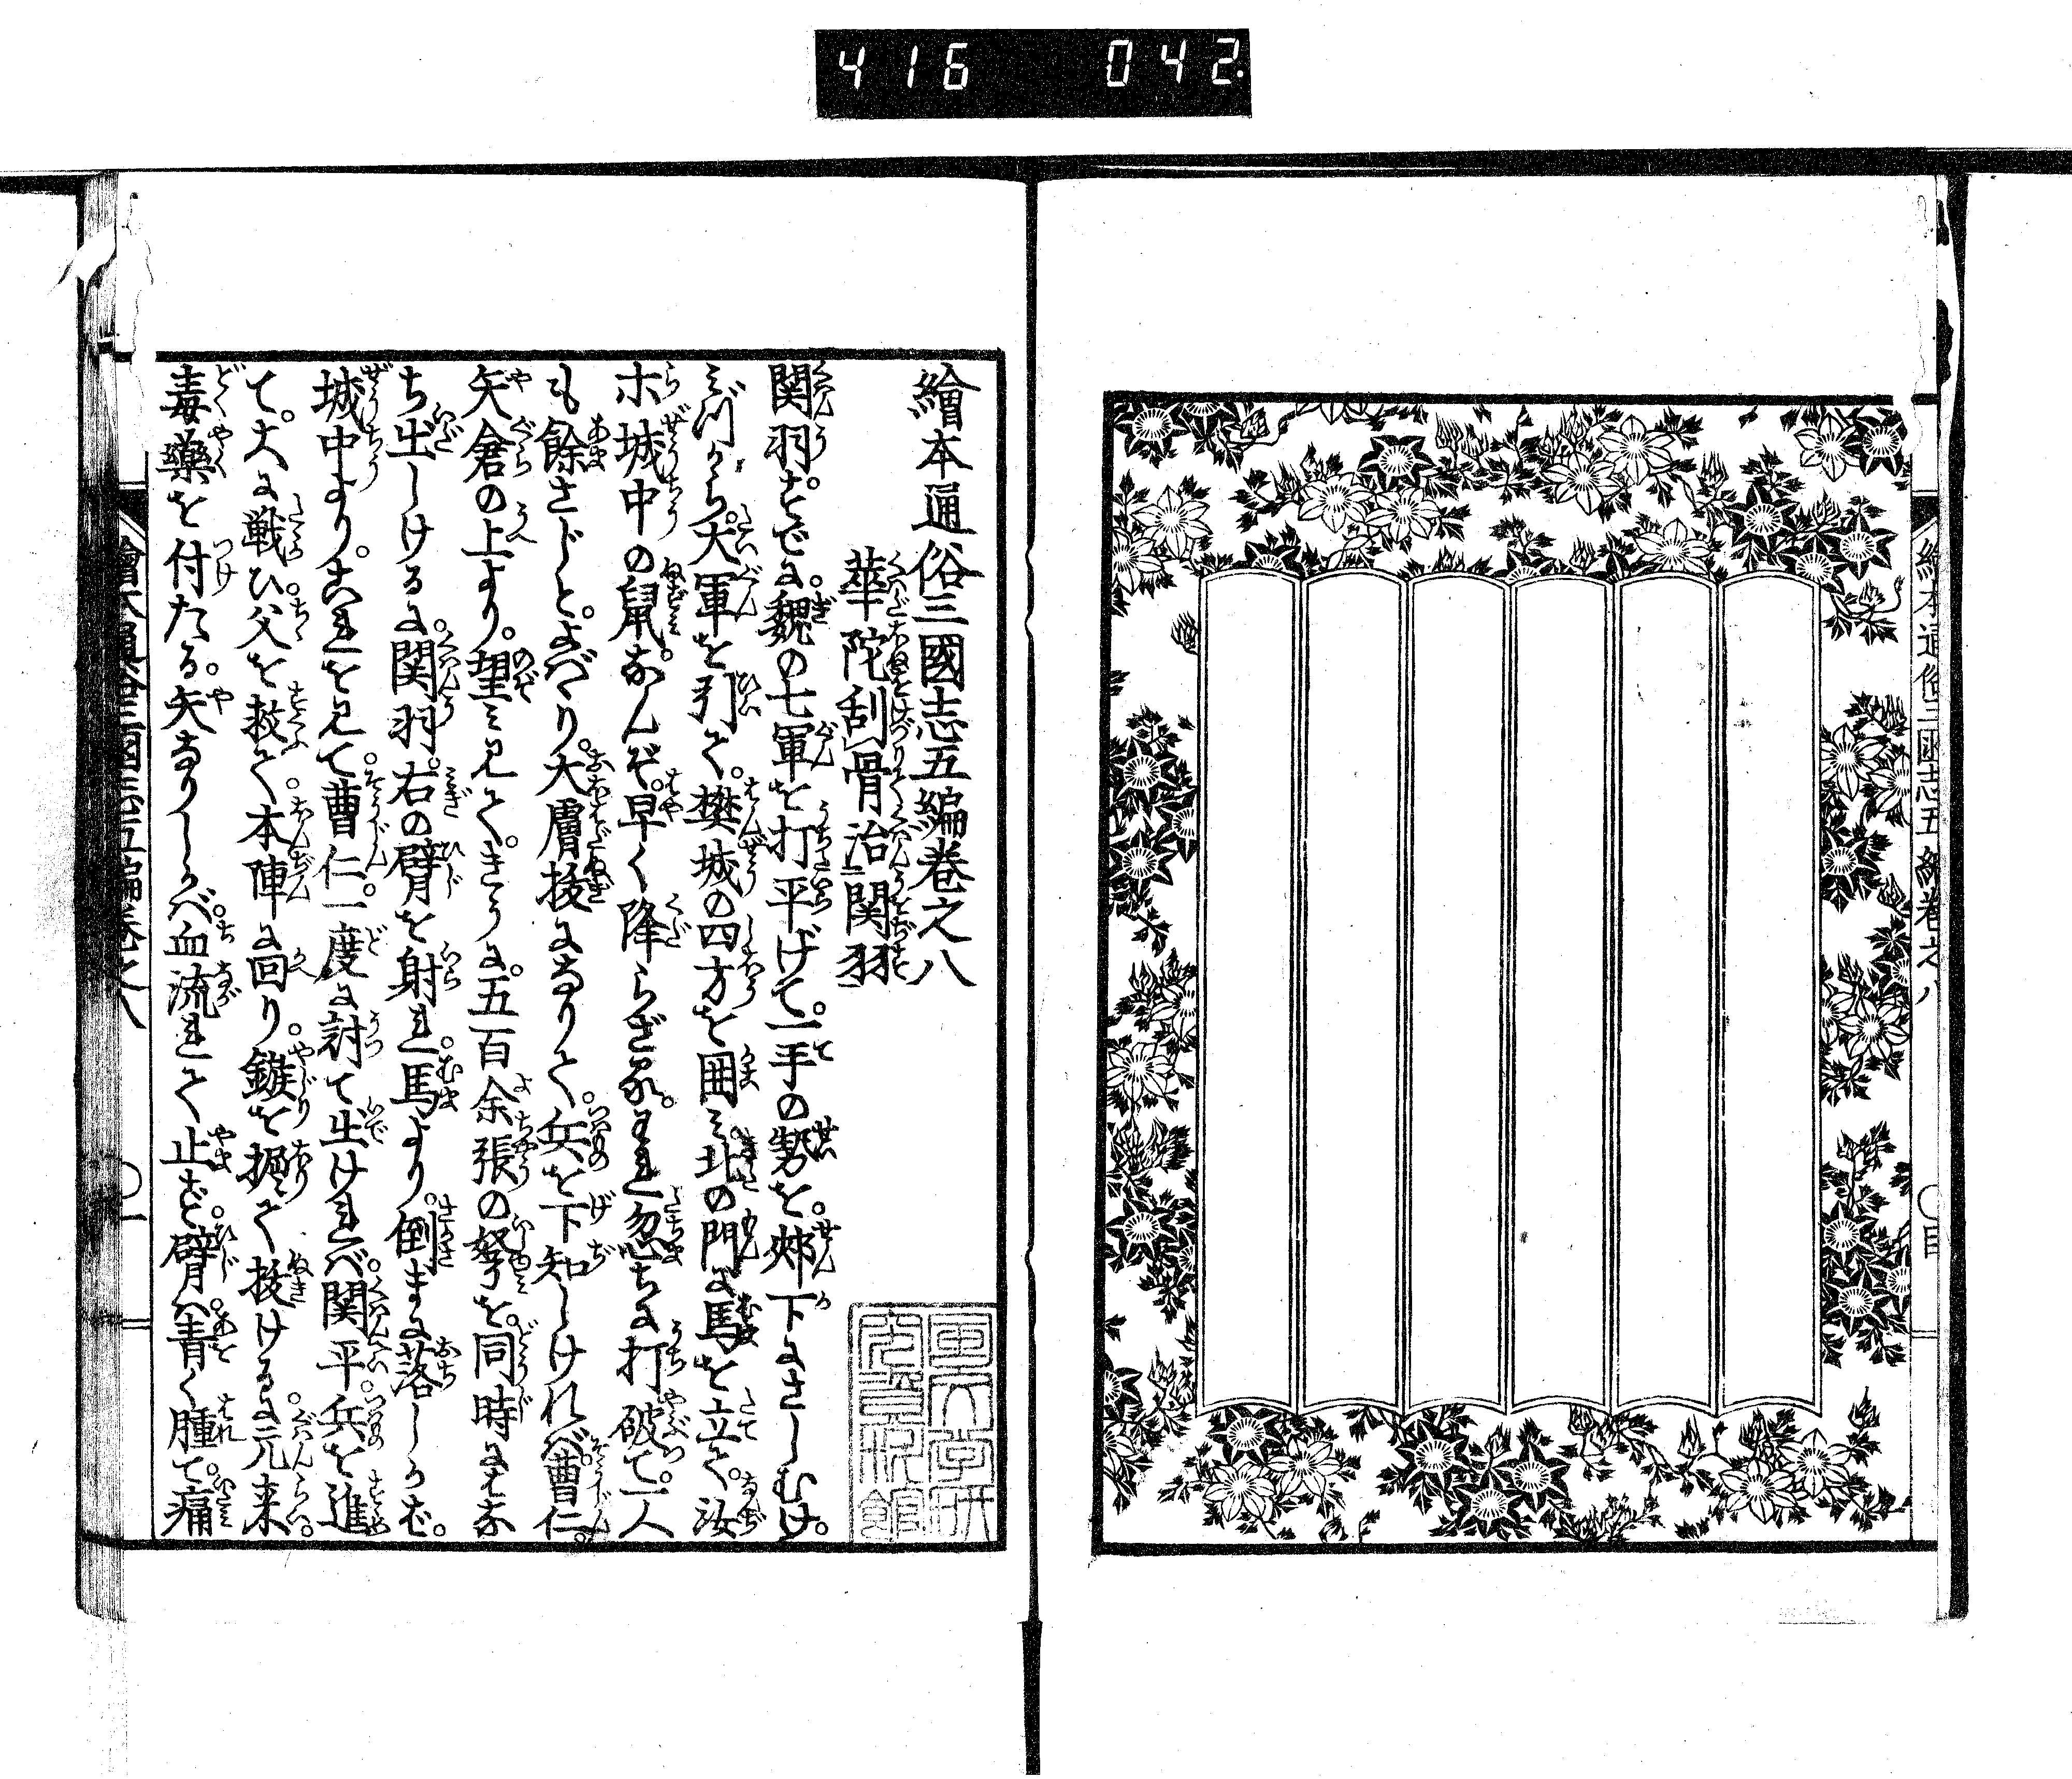 416 042
繪本通俗三國志五編卷之八
繪本通俗三國志五編卷之八
華陀刮骨治関羽
関羽。すでに。魏の七軍を打平げて。一手の勢を。郟下にさしむけ。
ミづから。大軍を引て。樊城の四方を囲ミ。北の門に馬を立て。汝
ホ城中の鼠。なんぞ。早く降らざる。われ忽ちに打破て。一人
も餘さじと。よバゝり。大膚抜になりて。兵を下知しけれバ。曹仁。
矢倉の上より。望ミ見て。きうに。五百余張の弩を。同時にはな
ち出しけるに。関羽。右の臂を射られ。馬より。倒まに落しかば。
城中より。これを見て。曹仁。一度に討て出けれバ。関平。兵を進
て。大に戦ひ。父を救て。本陣に回り。鏃を掘て抜けるに。元来。
毒藥を付たる。矢なりしかバ。血流れて止ず。臂。青く腫て。痛
繪本通俗三國志五編卷之八
〇一